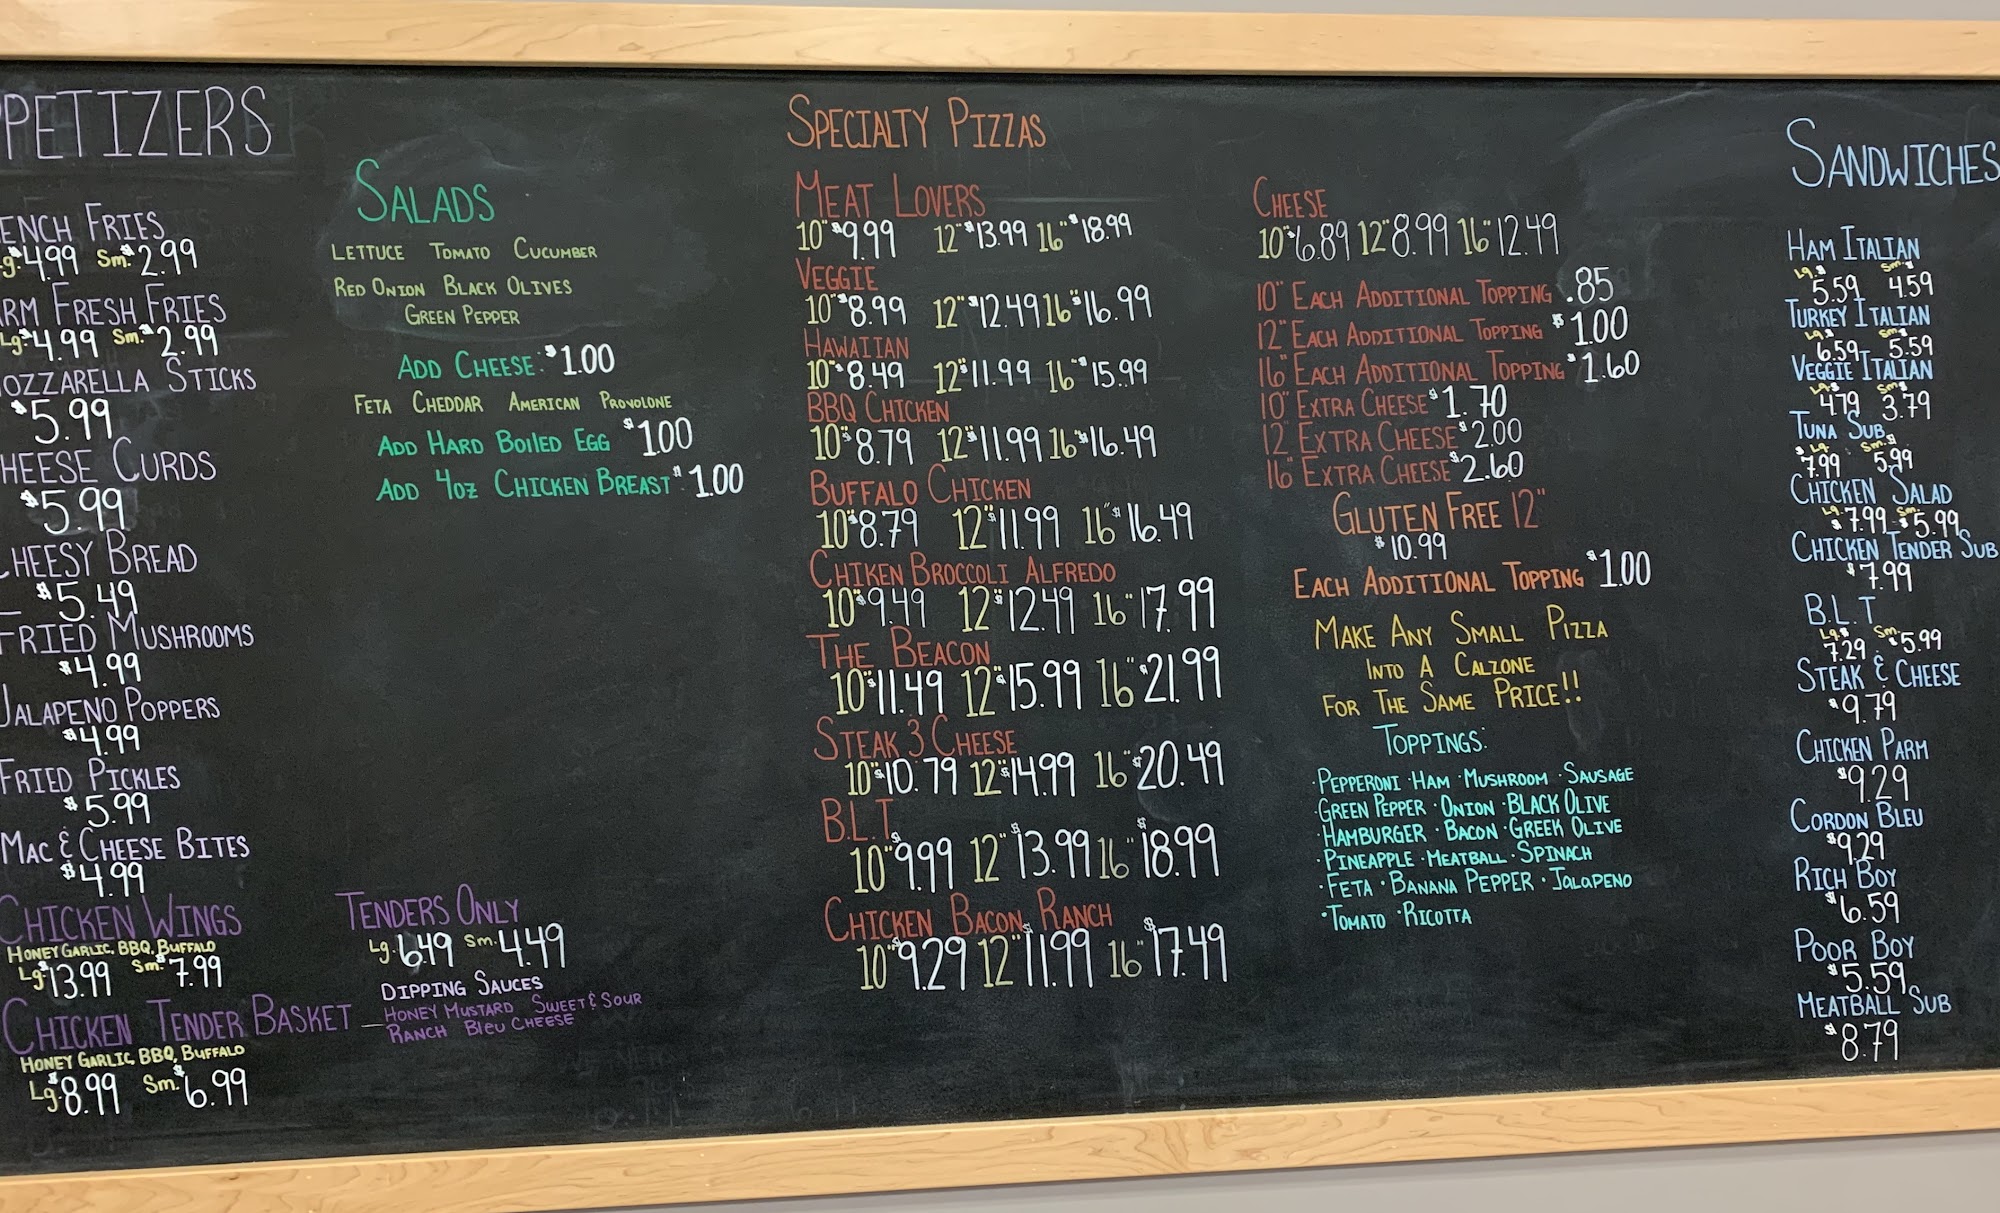 PPETIZERS
ENCH FRIES
Lg. $4.99 Sm. $2.99
ARM FRESH FRIES
Lg. $4.99 Sm. $2.99
OZZARELLA STICKS
$5.99
HEESE CURDS
$5.99
CHEESY BREAD
$5.49
FRIED MUSHROOMS
$4.99
JALAPENO POPPERS
$4.99
FRIED PICKLES
$5.99
MAC & CHEESE BITES
$4.99
CHICKEN WINGS
HONEY GARLIC, BBQ, BUFFALO
Lg. $13.99 Sm. $7.99
CHICKEN TENDER BASKET —
HONEY GARLIC, BBQ, BUFFALO
Lg. $8.99 Sm. $6.99
SALADS
LETTUCE TOMATO CUCUMBER
RED ONION BLACK OLIVES
GREEN PEPPER
ADD CHEESE: $1.00
FETA CHEDDAR AMERICAN PROVOLONE
ADD HARD BOILED EGG $1.00
ADD 4oz CHICKEN BREAST $1.00
TENDERS ONLY
Lg. $6.49 Sm. $4.49
DIPPING SAUCES
HONEY MUSTARD SWEET & SOUR
RANCH BLEU CHEESE
SPECIALTY PIZZAS
MEAT LOVERS
10" $9.99 12" $13.99 16" $18.99
VEGGIE
10" $8.99 12" $12.49 16" $16.99
HAWAIIAN
10" $8.49 12" $11.99 16" $15.99
BBQ CHICKEN
10" $8.79 12" $11.99 16" $16.49
BUFFALO CHICKEN
10" $8.79 12" $11.99 16" $16.49
CHIKEN BROCCOLI ALFREDO
10" $9.49 12" $12.49 16" $17.99
THE BEACON
10" $11.49 12" $15.99 16" $21.99
STEAK 3 CHEESE
10" $10.79 12" $14.99 16" $20.49
B.L.T
10" $9.99 12" $13.99 16" $18.99
CHICKEN BACON RANCH
10" $9.29 12" $11.99 16" $17.49
CHEESE
10" $6.89 12" $8.99 16" $12.49
10" EACH ADDITIONAL TOPPING .85
12" EACH ADDITIONAL TOPPING $1.00
16" EACH ADDITIONAL TOPPING $1.60
10" EXTRA CHEESE $1.70
12" EXTRA CHEESE $2.00
16" EXTRA CHEESE $2.60
GLUTEN FREE 12"
$10.99
EACH ADDITIONAL TOPPING $1.00
MAKE ANY SMALL PIZZA
INTO A CALZONE
FOR THE SAME PRICE!!
TOPPINGS:
·PEPPERONI ·HAM ·MUSHROOM ·SAUSAGE
·GREEN PEPPER ·ONION ·BLACK OLIVE
·HAMBURGER ·BACON ·GREEK OLIVE
·PINEAPPLE ·MEATBALL ·SPINACH
·FETA ·BANANA PEPPER ·JALAPENO
·TOMATO ·RICOTTA
SANDWICHES
HAM ITALIAN
Lg. $5.59 Sm. $4.59
TURKEY ITALIAN
Lg. $6.59 Sm. $5.59
VEGGIE ITALIAN
Lg. $4.79 Sm. $3.79
TUNA SUB
Lg. $7.99 Sm. $5.99
CHICKEN SALAD
Lg. $7.99 Sm. $5.99
CHICKEN TENDER SUB
$7.99
B.L.T
Lg. $7.29 Sm. $5.99
STEAK & CHEESE
$9.79
CHICKEN PARM
$9.29
CORDON BLEU
$9.29
RICH BOY
$6.59
POOR BOY
$5.59
MEATBALL SUB
$8.79